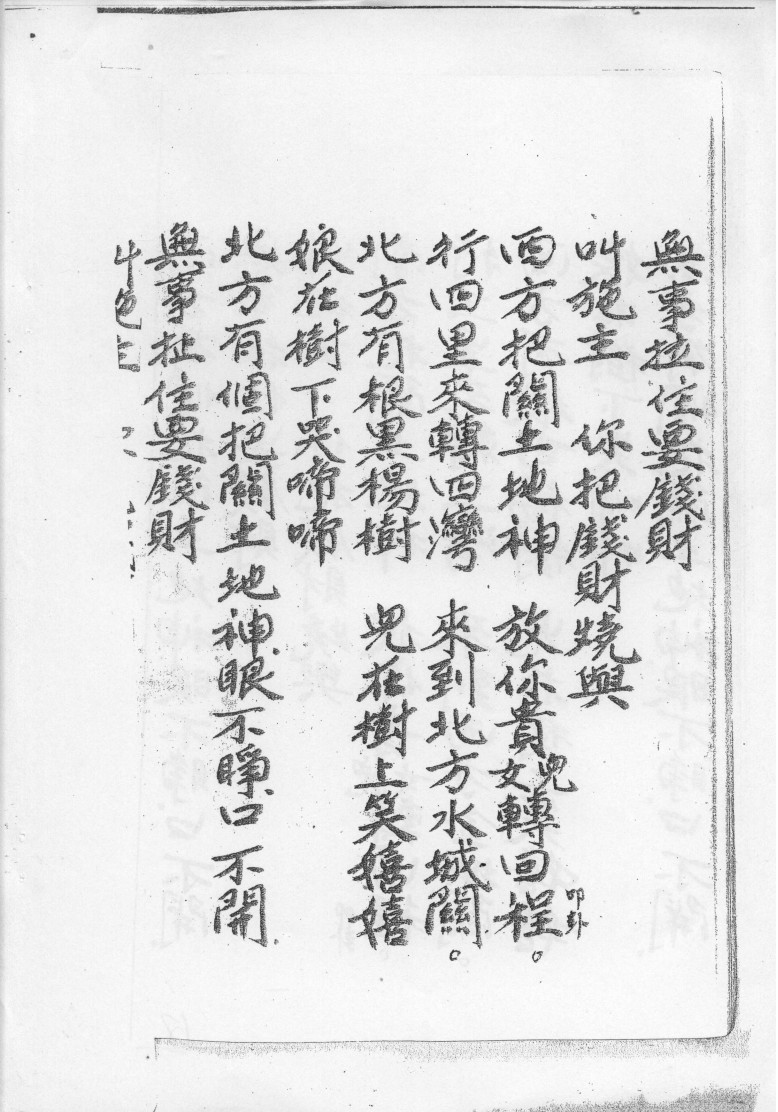 無事扯住要錢財
叫施主　你把錢財燒與
西方把關土地神　放你貴女兒轉回程。叩卦
行四里來轉四灣　來到北方水城關。
北方有根黑楊樹　兒在樹上笑嬉嬉
娘在樹下哭啼啼
北方有個把關土地神眼不睜口不開
無事扯住要錢財